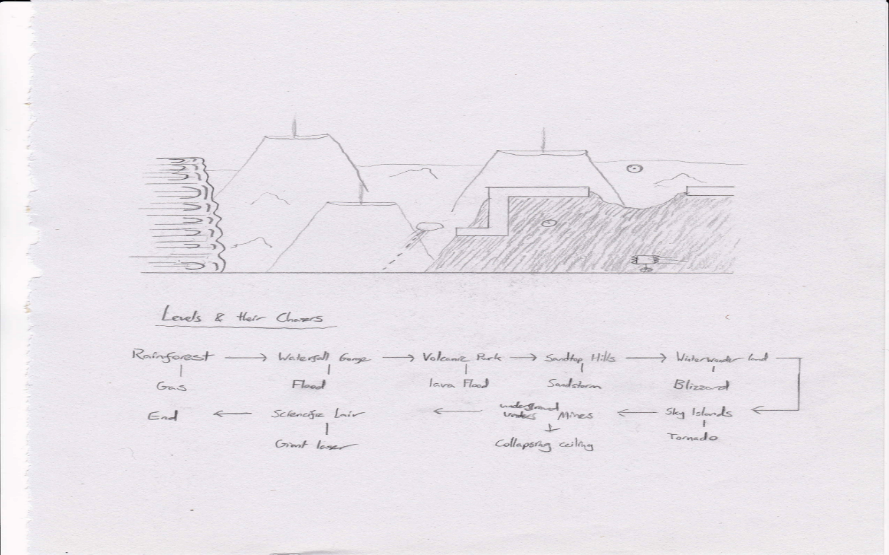 Levels & their Chasers
Rainforest → Waterfall Gorge → Volcanic Park → Sandtop Hills → Winterwonder land
Gas Flood lava Flood Sandstorm Blizzard
End ← Sciencefic Lair ← underground Mines ← Sky Islands
Giant laser Collapsing ceiling Tornado